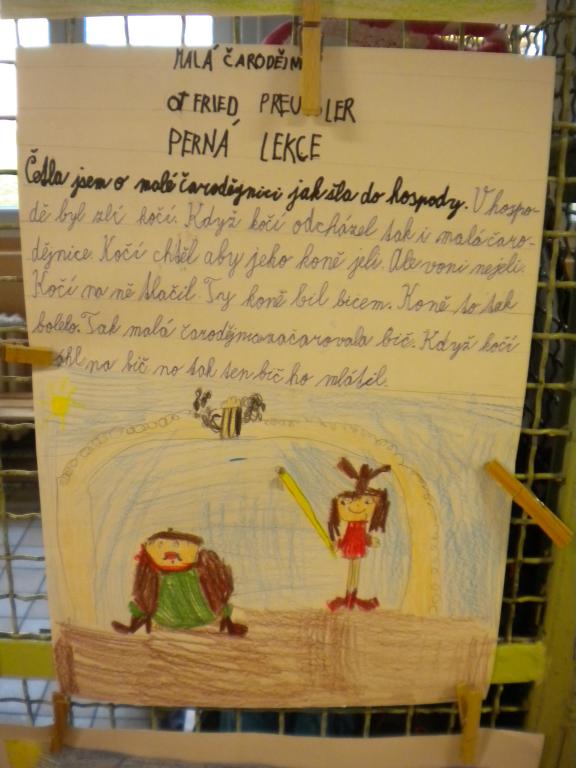 MALÁ ČARODĚJN
OTFRIED PREU LER
PERNÁ LEKCE
Četla jsem o malé čarodějnici jak šla do hospody. V hospo-
dě byl zlí kočí. Když kočí odcházel tak i malá čaro-
dějnice. Kočí chtěl aby jeho koně jeli. Ale voni nejeli.
Kočí na ně tlačil. Ty koně bil bicem. Koně to tak
bolelo. Tak malá čarodějnice začarovala bič. Když kočí
áhl na bič no tak ten bič ho mlátil.